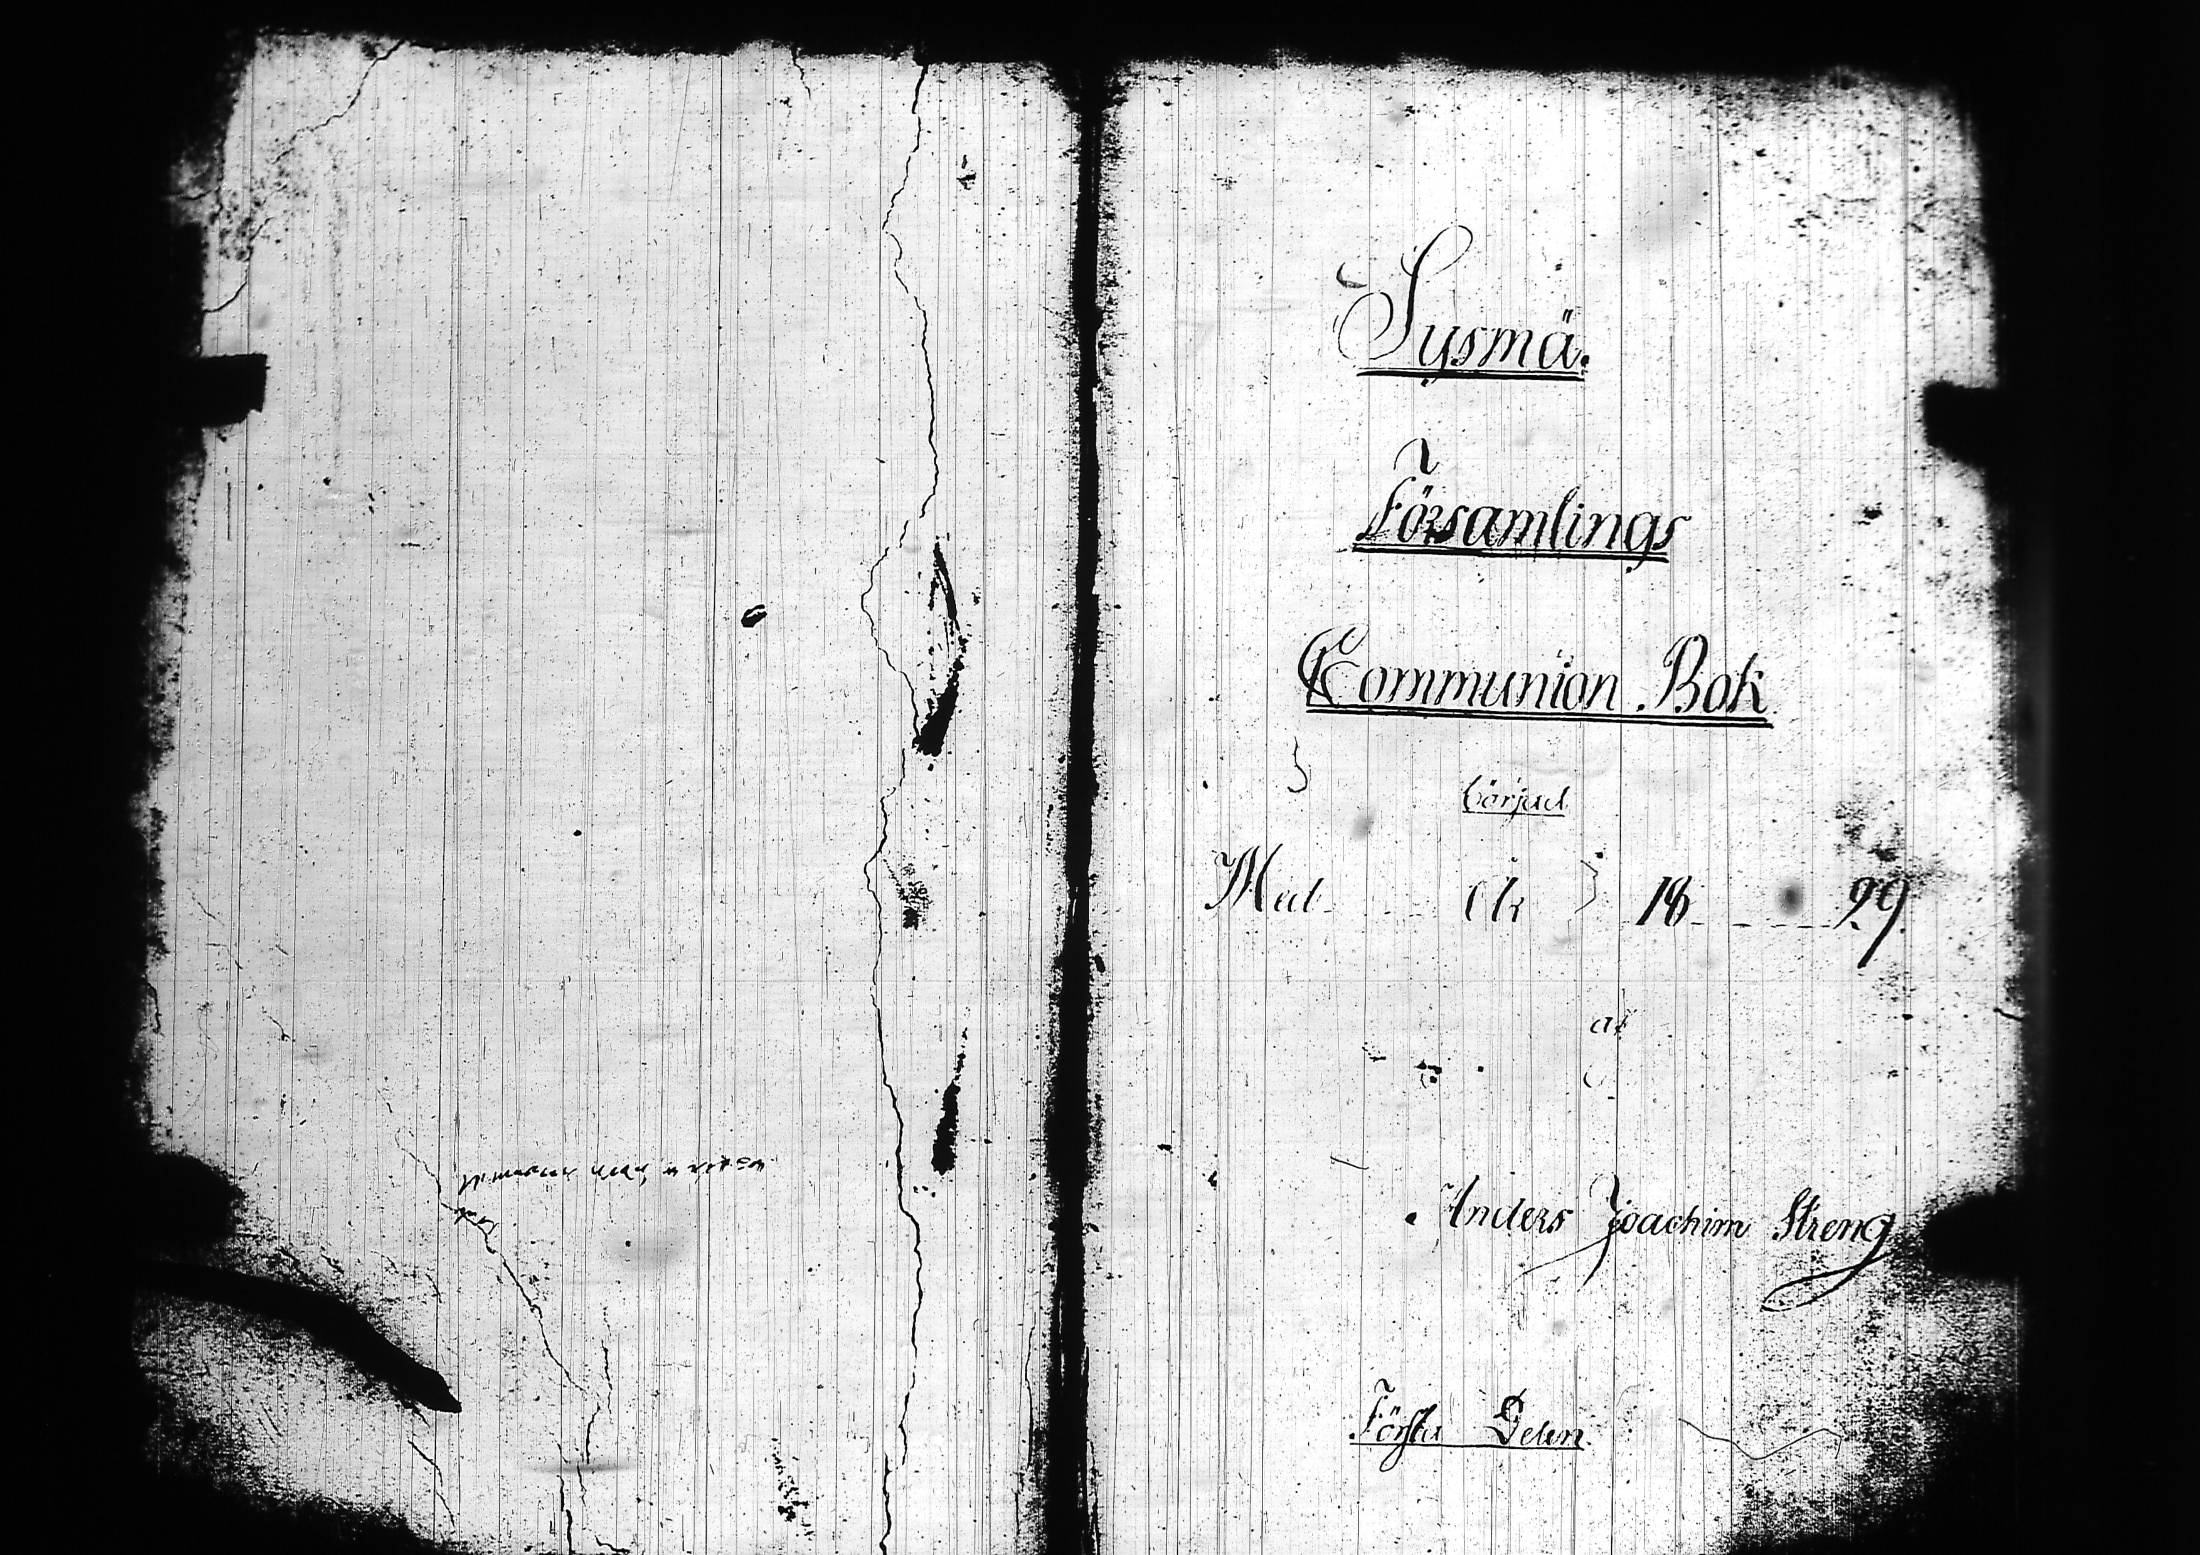 Sysmä.
Församlings
Communion Bok
börjad
Med År 18 29.
af
Anders Joachim Streng
Första Delen.